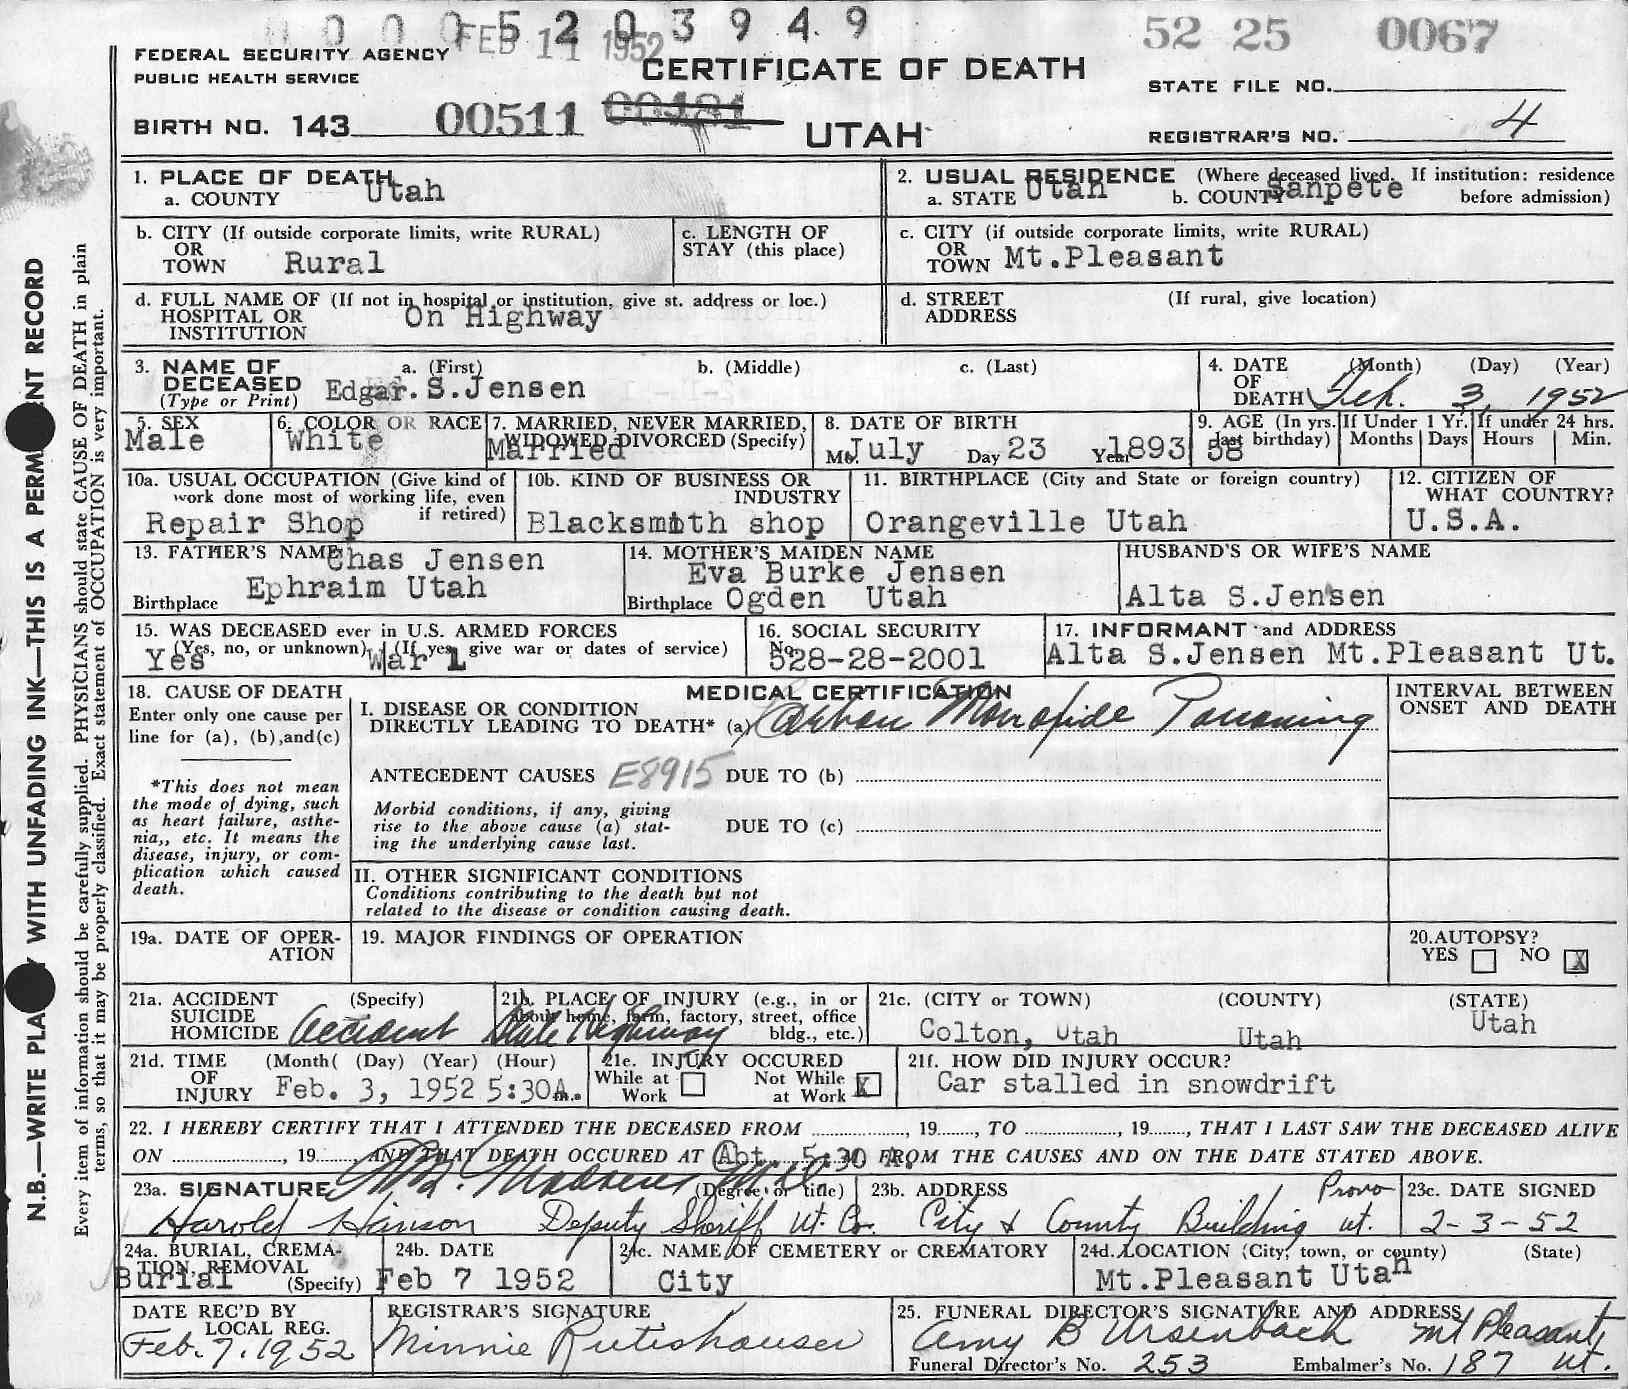 0 0 0 0 5 2 0 3 9 4 9
FEB 11 1952
52 25 0067
FEDERAL SECURITY AGENCY
PUBLIC HEALTH SERVICE
CERTIFICATE OF DEATH
STATE FILE NO.
BIRTH NO. 143 00511
UTAH
REGISTRAR'S NO. 4
1. PLACE OF DEATH
a. COUNTY Utah
2. USUAL RESIDENCE (Where deceased lived. If institution: residence before admission)
a. STATE Utah b. COUNTY Sanpete
b. CITY (If outside corporate limits, write RURAL)
OR
TOWN Rural
c. LENGTH OF
STAY (this place)
c. CITY (if outside corporate limits, write RURAL)
OR
TOWN Mt.Pleasant
d. FULL NAME OF (If not in hospital or institution, give st. address or loc.)
HOSPITAL OR
INSTITUTION On Highway
d. STREET (If rural, give location)
ADDRESS
3. NAME OF
DECEASED
(Type or Print)
a. (First) b. (Middle) c. (Last)
Edgar.S.Jensen
4. DATE (Month) (Day) (Year)
OF
DEATH Feb. 3, 1952
5. SEX
Male
6. COLOR OR RACE
White
7. MARRIED, NEVER MARRIED,
WIDOWED, DIVORCED (Specify)
Married
8. DATE OF BIRTH
Mo. July Day 23 Year 1893
9. AGE (In yrs. last birthday) 58
If Under 1 Yr. Months Days
If under 24 hrs. Hours Min.
10a. USUAL OCCUPATION (Give kind of
work done most of working life, even
if retired)
Repair Shop
10b. KIND OF BUSINESS OR
INDUSTRY
Blacksmith shop
11. BIRTHPLACE (City and State or foreign country)
Orangeville Utah
12. CITIZEN OF
WHAT COUNTRY?
U.S.A.
13. FATHER'S NAME Chas Jensen
Birthplace Ephraim Utah
14. MOTHER'S MAIDEN NAME
Eva Burke Jensen
Birthplace Ogden Utah
HUSBAND'S OR WIFE'S NAME
Alta S.Jensen
15. WAS DECEASED ever in U.S. ARMED FORCES
(Yes, no, or unknown) (If yes, give war or dates of service)
Yes War 1
16. SOCIAL SECURITY
No. 528-28-2001
17. INFORMANT and ADDRESS
Alta S.Jensen Mt.Pleasant Ut.
18. CAUSE OF DEATH
Enter only one cause per
line for (a), (b),and(c)
*This does not mean
the mode of dying, such
as heart failure, asthe-
nia,, etc. It means the
disease, injury, or com-
plication which caused
death.
MEDICAL CERTIFICATION
I. DISEASE OR CONDITION
DIRECTLY LEADING TO DEATH* (a) Carbon Monoxide Poisoning
ANTECEDENT CAUSES E8915 DUE TO (b)
Morbid conditions, if any, giving
rise to the above cause (a) stat-
ing the underlying cause last.
DUE TO (c)
II. OTHER SIGNIFICANT CONDITIONS
Conditions contributing to the death but not
related to the disease or condition causing death.
INTERVAL BETWEEN
ONSET AND DEATH
19a. DATE OF OPER-
ATION
19. MAJOR FINDINGS OF OPERATION
20.AUTOPSY?
YES NO X
21a. ACCIDENT (Specify)
SUICIDE
HOMICIDE Accident
21b. PLACE OF INJURY (e.g., in or
about home, farm, factory, street, office
bldg., etc.)
State Highway
21c. (CITY or TOWN) (COUNTY) (STATE)
Colton, Utah Utah Utah
21d. TIME (Month( (Day) (Year) (Hour)
OF
INJURY Feb. 3, 1952 5:30A.
21e. INJURY OCCURED
While at Work Not While at Work X
21f. HOW DID INJURY OCCUR?
Car stalled in snowdrift
22. I HEREBY CERTIFY THAT I ATTENDED THE DECEASED FROM , 19 , TO , 19 , THAT I LAST SAW THE DECEASED ALIVE
ON , 19 , AND THAT DEATH OCCURED AT Abt. 5:30 A. M. FROM THE CAUSES AND ON THE DATE STATED ABOVE.
23a. SIGNATURE Madsen MD (Degree or title)
Harold Hanson Deputy Sheriff Ut. Co.
23b. ADDRESS Provo
City & County Building Ut.
23c. DATE SIGNED
2-3-52
24a. BURIAL, CREMA-
TION, REMOVAL
(Specify)
Burial
24b. DATE
Feb 7 1952
24c. NAME OF CEMETERY or CREMATORY
City
24d. LOCATION (City, town, or county) (State)
Mt.Pleasant Utah
DATE REC'D BY
LOCAL REG.
Feb. 7. 1952
REGISTRAR'S SIGNATURE
Minnie Rutishauser
25. FUNERAL DIRECTOR'S SIGNATURE AND ADDRESS
Amy B Ursenbach Mt Pleasant, Ut.
Funeral Director's No. 253 Embalmer's No. 187
N.B.—WRITE PLA WITH UNFADING INK—THIS IS A PERM NT RECORD
Every item of information should be carefully supplied. PHYSICIANS should state CAUSE OF DEATH in plain
terms, so that it may be properly classified. Exact statement of OCCUPATION is very important.